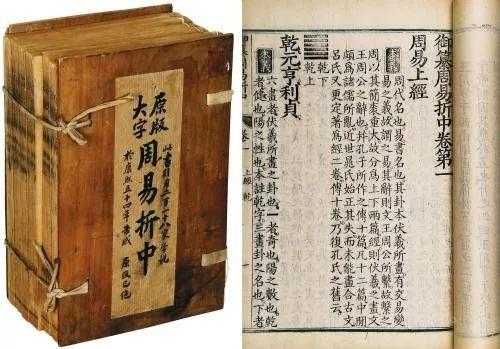 原版
大字
周易折中
於康熙五十四年書成 原版已絕
御纂周易折中卷第一
周易上經
周代名也易書名也其卦本伏羲所畫有交易變
易之義故謂之易其辭則文王周公所繫故繫之
周以其簡袠重大故分為上下兩篇經則伏羲之畫文
王周公之辭也并孔子所作之傳十篇凡十二篇中間
頗為諸儒所亂近世晁氏始正其失而未能盡合古文
呂氏又更定著為經二卷傳十卷乃復孔氏之舊云
乾下
乾上
乾元亨利貞
六畫者伏羲所畫之卦也一者奇也陽之數也乾
者健也陽之性也本註乾字三畫卦之名也下者
卷一 上經 乾